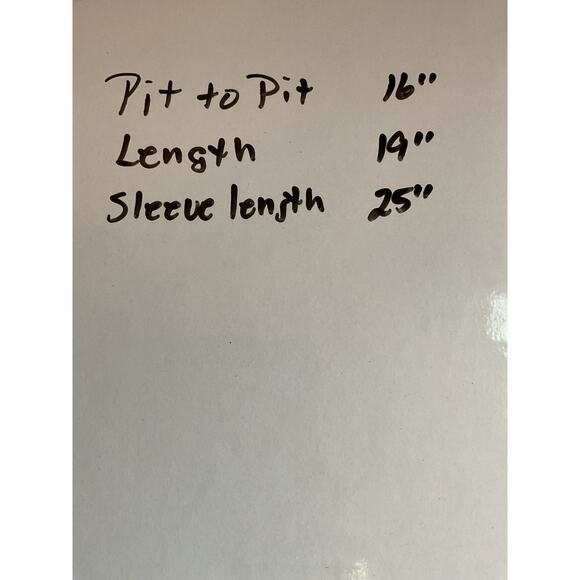 Pit to Pit 16"
Length 19"
Sleeve length 25"